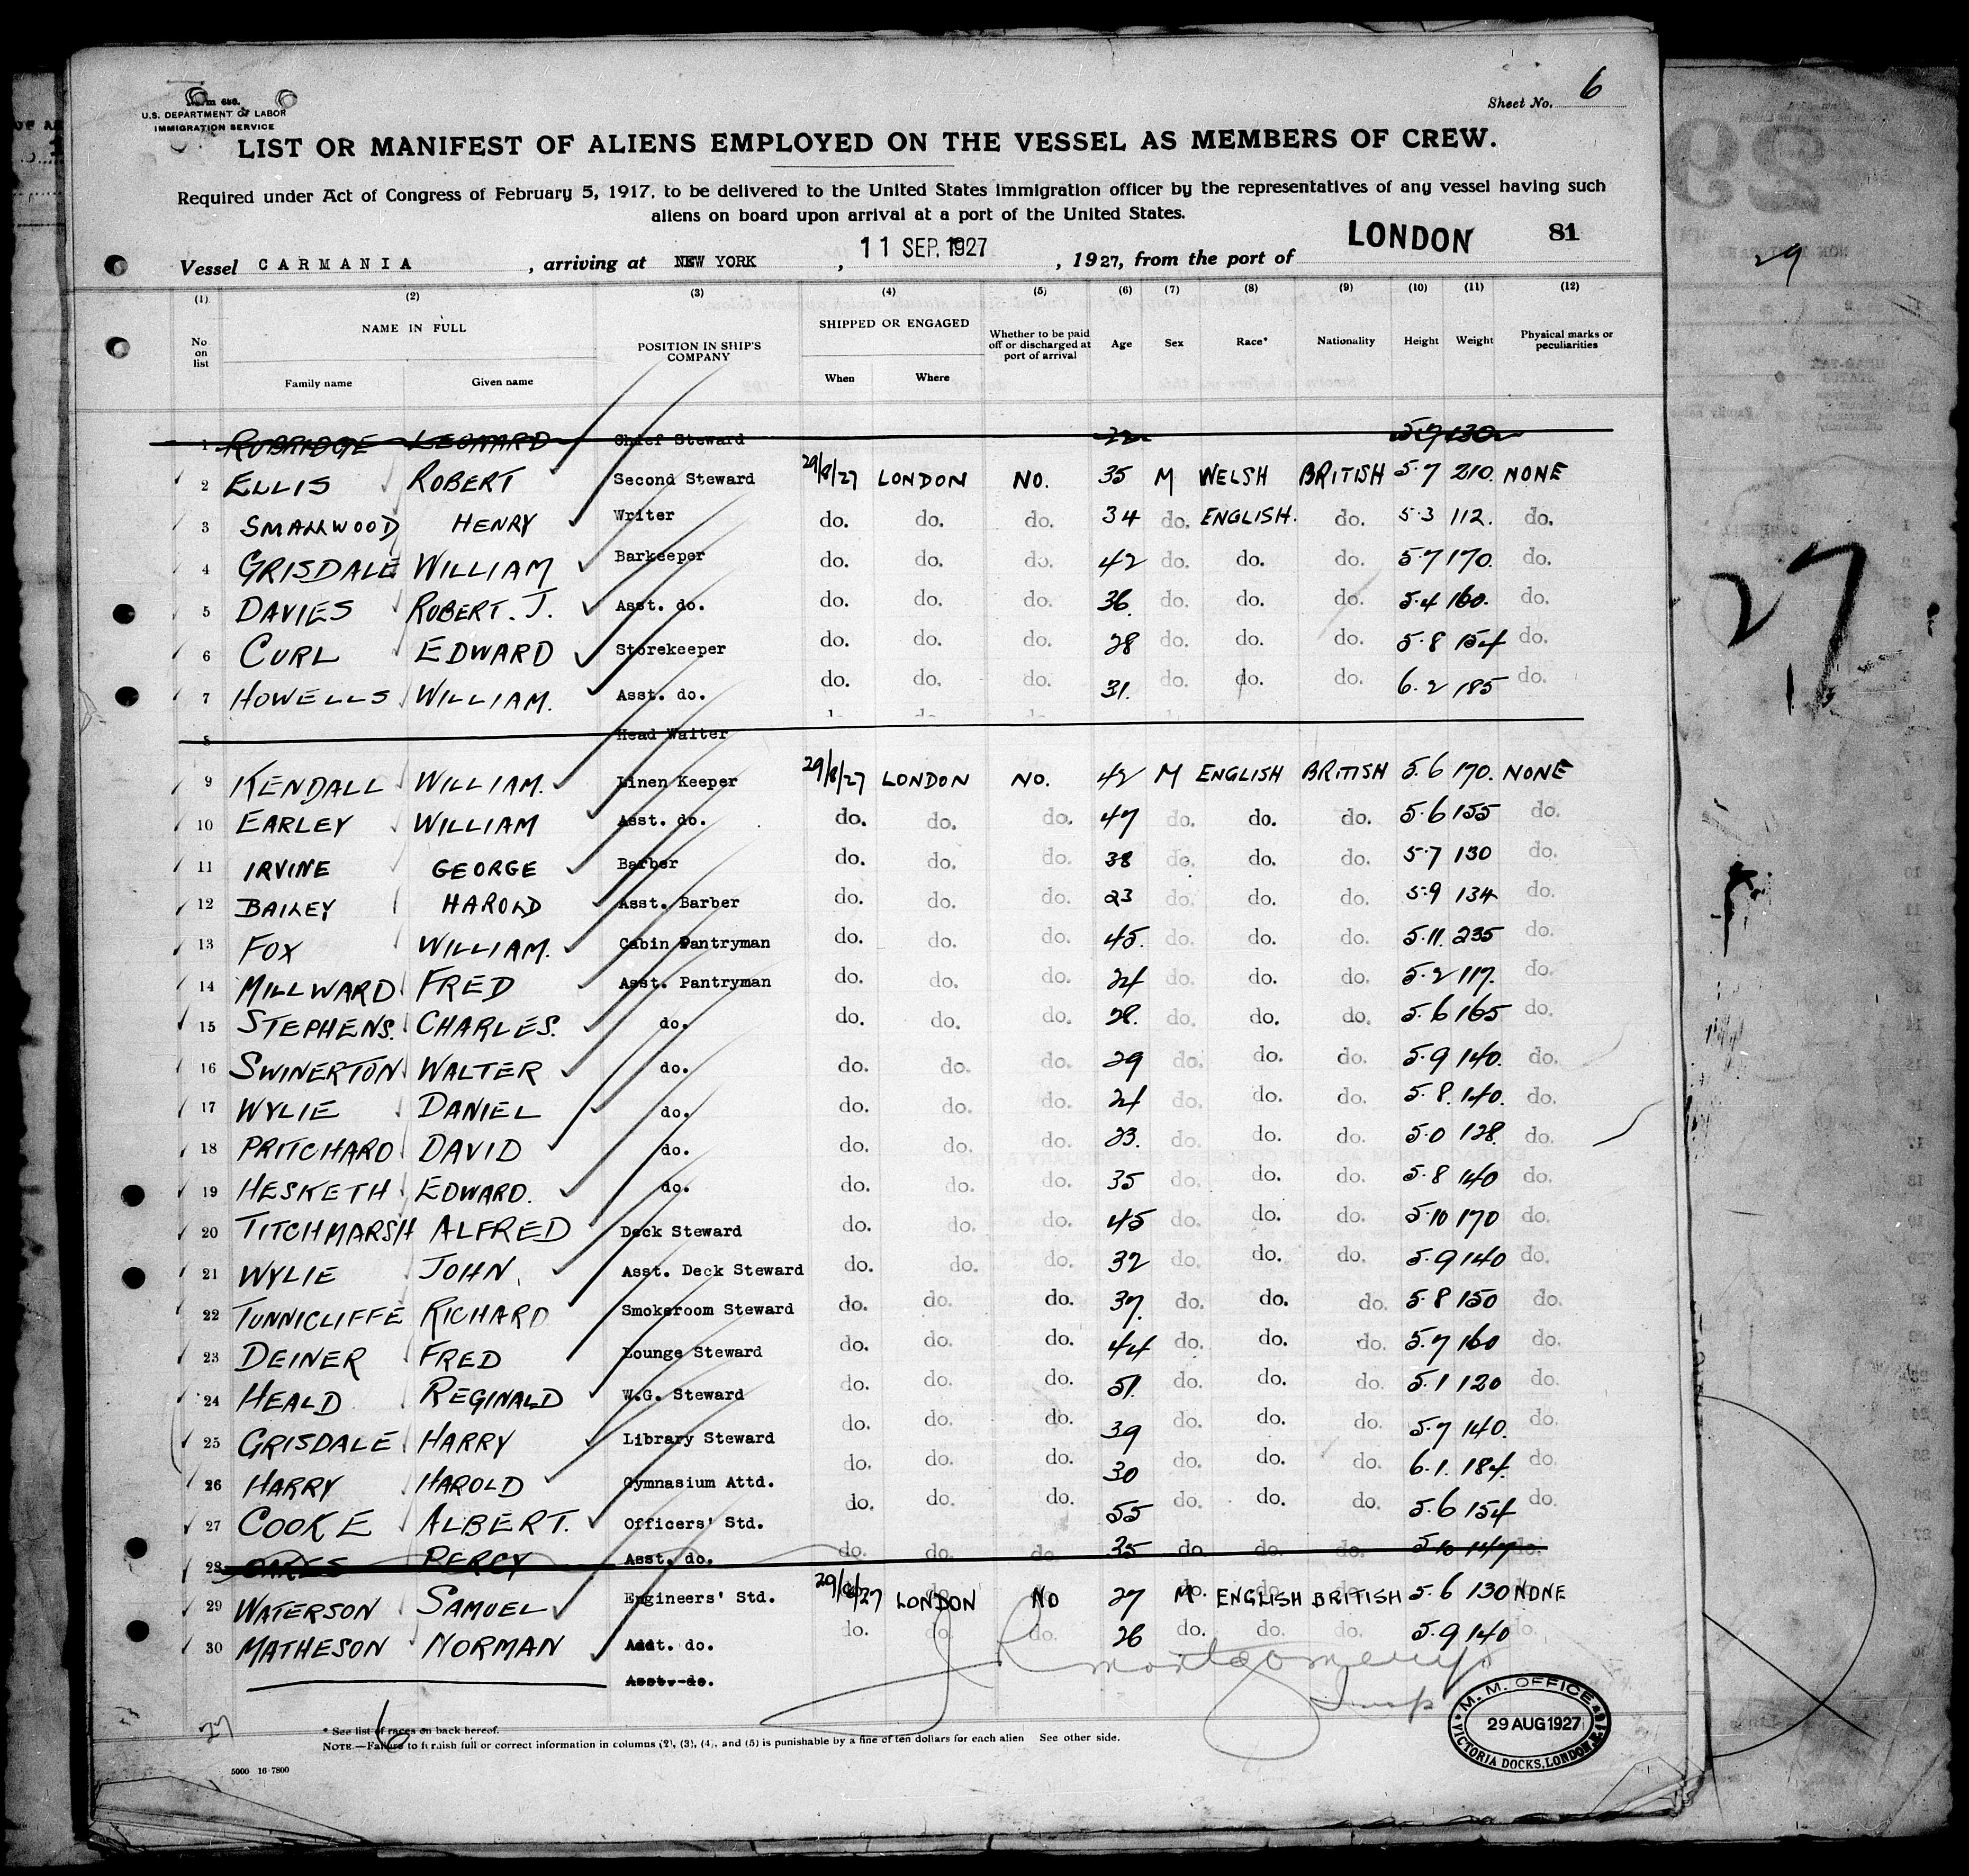 Sheet No. 6
Form 686.
U.S. DEPARTMENT OF LABOR
IMMIGRATION SERVICE
LIST OR MANIFEST OF ALIENS EMPLOYED ON THE VESSEL AS MEMBERS OF CREW.
Required under Act of Congress of February 5, 1917, to be delivered to the United States immigration officer by the representatives of any vessel having such
aliens on board upon arrival at a port of the United States.
Vessel CARMANIA, arriving at NEW YORK, 11 SEP. 1927, 1927, from the port of LONDON 81
(1) (2) (3) (4) (5) (6) (7) (8) (9) (10) (11) (12)
No on list NAME IN FULL Family name Given name POSITION IN SHIP'S COMPANY SHIPPED OR ENGAGED When Where Whether to be paid off or discharged at port of arrival Age Sex Race* Nationality Height Weight Physical marks or peculiarities
1 RUBRIDGE LEONARD Chief Steward 32 5.7 130
2 ELLIS ROBERT Second Steward 29/8/27 LONDON NO. 35 M WELSH BRITISH 5.7 210. NONE
3 SMALLWOOD HENRY Writer do. do. do. 34 do. ENGLISH. do. 5.3 112. do.
4 GRISDALE WILLIAM Barkeeper do. do. do. 42 do. do. do. 5.7 170. do.
5 DAVIES ROBERT. J. Asst. do. do. do. do. 36. do. do. do. 5.4 160. do.
6 CURL EDWARD Storekeeper do. do. do. 28 do. do. do. 5.8 154 do.
7 HOWELLS WILLIAM. Asst. do. do. do. do. 31. do. do. do. 6.2 185 do.
8 Head Waiter
9 KENDALL WILLIAM. Linen Keeper 29/8/27 LONDON NO. 42 M ENGLISH BRITISH 5.6 170. NONE
10 EARLEY WILLIAM Asst. do. do. do. do. 47 do. do. do. 5.6 155 do.
11 IRVINE GEORGE Barber do. do. do. 38 do. do. do. 5.7 130 do.
12 BAILEY HAROLD Asst. Barber do. do. do. 23 do. do. do. 5.9 134 do.
13 FOX WILLIAM. Cabin Pantryman do. do. do. 45. do. do. do. 5.11. 235 do.
14 MILLWARD FRED Asst. Pantryman do. do. do. 24 do. do. do. 5.2 117. do.
15 STEPHENS. CHARLES. do. do. do. do. 28. do. do. do. 5.6 165 do.
16 SWINERTON WALTER do. do. do. do. 29 do. do. do. 5.9 140. do.
17 WYLIE DANIEL do. do. do. do. 21 do. do. do. 5.8. 140. do.
18 PRITCHARD DAVID do. do. do. do. 23. do. do. do. 5.0 128. do.
19 HESKETH EDWARD. do. do. do. do. 35 do. do. do. 5.8 140 do.
20 TITCHMARSH ALFRED Deck Steward do. do. do. 45 do. do. do. 5.10 170 do.
21 WYLIE JOHN. Asst. Deck Steward do. do. do. 32 do. do. do. 5.9 140 do.
22 TUNNICLIFFE RICHARD Smokeroom Steward do. do. do. 37. do. do. do. 5.8 150 do.
23 DEINER FRED Lounge Steward do. do. do. 44 do. do. do. 5.7 160 do.
24 HEALD REGINALD W.G. Steward do. do. do. 51. do. do. do. 5.1 120 do.
25 GRISDALE HARRY Library Steward do. do. do. 39 do. do. do. 5.7 140. do.
26 HARRY HAROLD Gymnasium Attd. do. do. do. 30 do. do. do. 6.1. 184. do.
27 COOKE ALBERT. Officers' Std. do. do. do. 55 do. do. do. 5.6 154 do.
28 OAKES PERCY Asst. do. do. do. do. 35 do. do. do. 5.10 147 do.
29 WATERSON SAMUEL Engineers' Std. 29/8/27 LONDON NO 27 M. ENGLISH BRITISH 5.6 130 NONE
30 MATHESON NORMAN Asst. do. do. do. do. 26 do. do. do. 5.9 140 do.
Asst. do.
Montgomery
Insp
27 6
* See list of races on back hereof.
NOTE.—Failure to furnish full or correct information in columns (2), (3), (4), and (5) is punishable by a fine of ten dollars for each alien See other side.
5000 16-7800
M. M. OFFICE
29 AUG 1927
VICTORIA DOCKS, LONDON
29
27